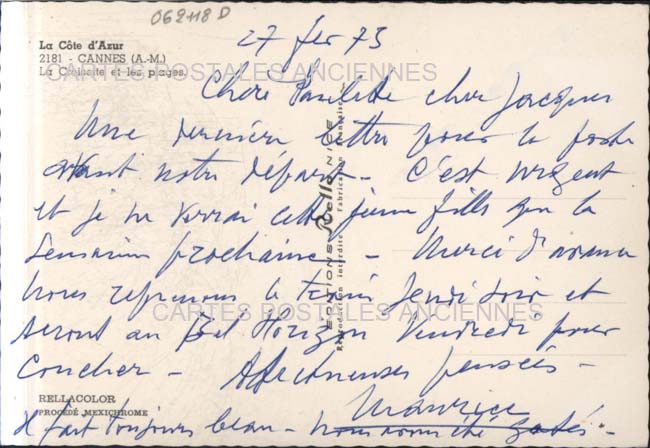 062118 D
La Côte d'Azur
2181 - CANNES (A.-M.)
La Croisette et les plages.
CARTES POSTALES ANCIENNES
27 fev 73
Chère Paulette cher Jacques
Une dernière lettre pour la poste
avant notre départ - C'est urgent
et je ne verrai cette jeune fille que la
semaine prochaine - Merci d'avance
nous reprenons le train Jeudi soir et
serons au Bel Horizon Vendredi pour
coucher - Affectueuses pensées -
Maurice
il fait toujours beau - nous avons été gatés -
EDITIONS Rella NICE
Reproduction interdite Fabrication Française
CARTES POSTALES ANCIENNES
RELLACOLOR
PROCÉDÉ MEXICHROME